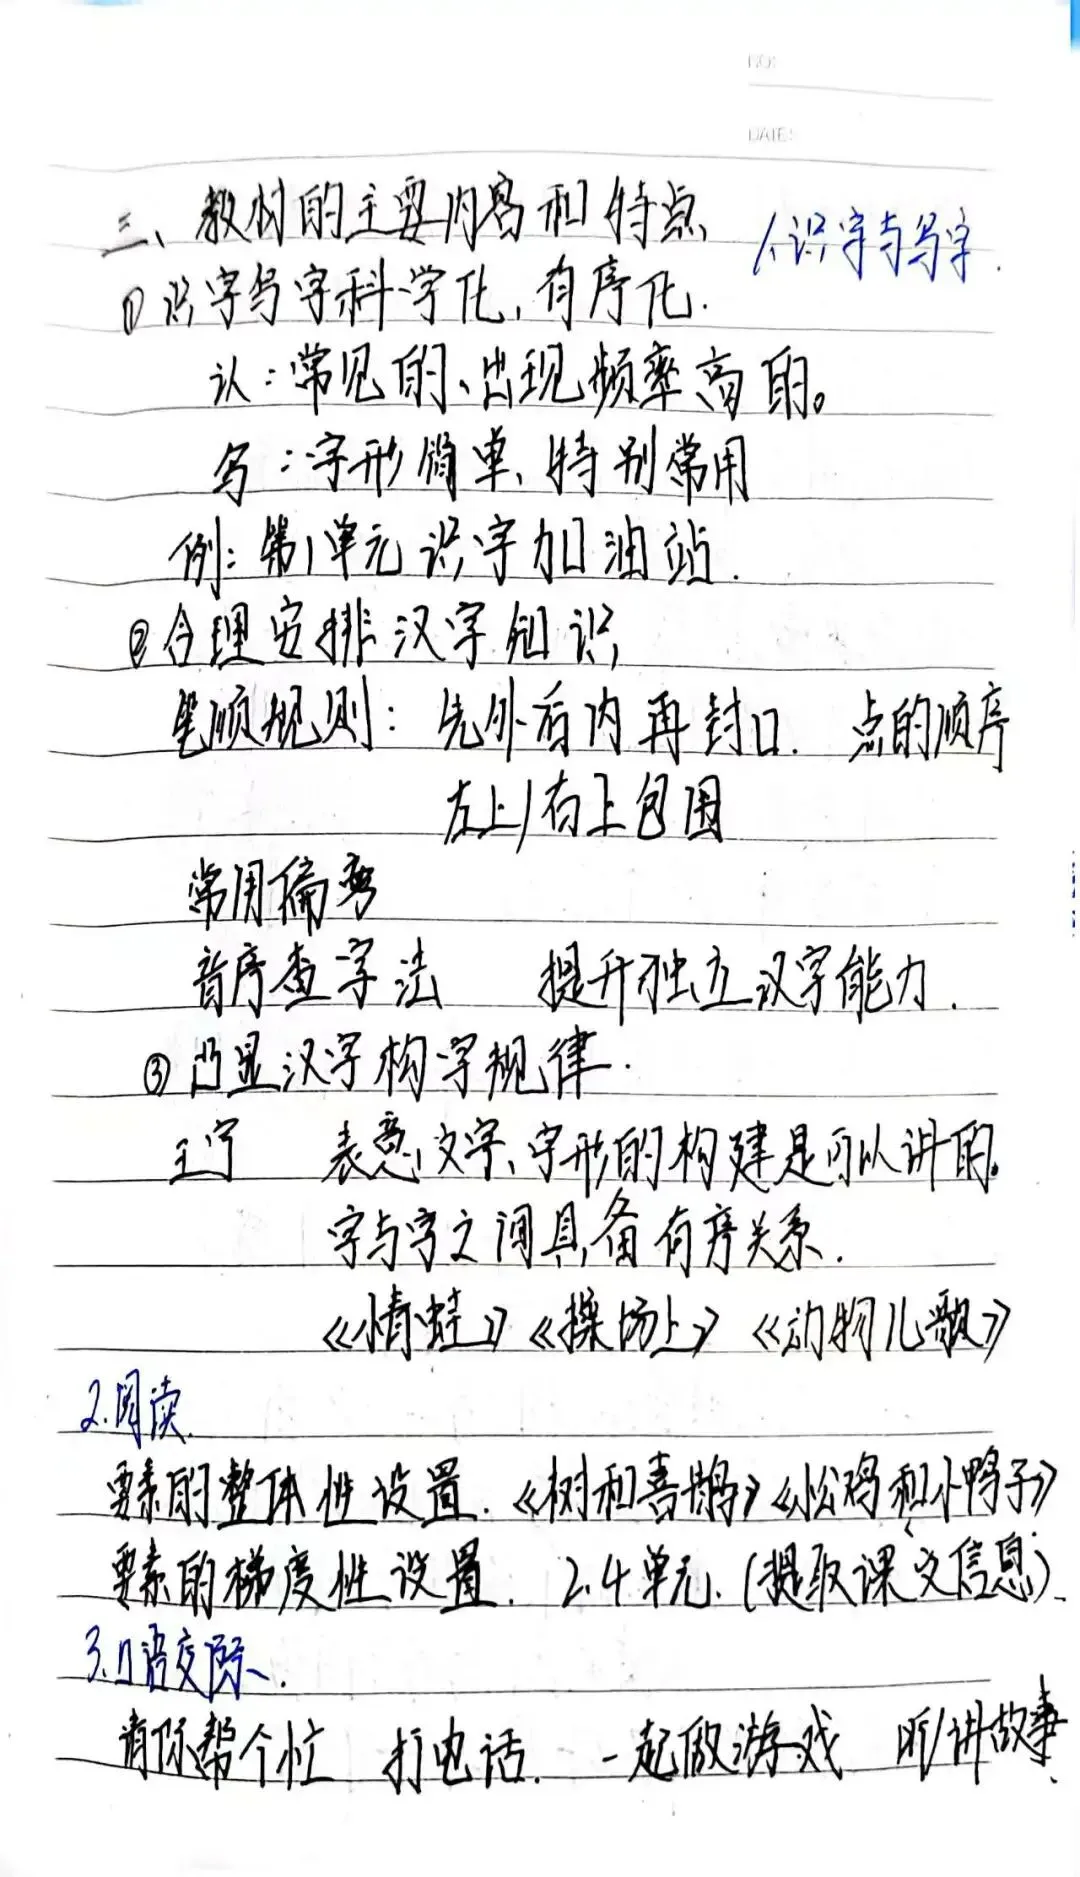 NO:
DATE:
三、教材的主要内容和特点 1、识字与写字.
① 识字写字科学化,有序化.
认:常见的、出现频率高的。
写:字形简单、特别常用
例:第1单元识字加油站.
② 合理安排汉字知识
笔顺规则: 先外后内再封口. 点的顺序
左上/右上包围
常用偏旁
音序查字法 提升独立汉字能力.
③ 凸显汉字构字规律.
王宁 表意文字、字形的构建是可以讲的。
字与字之间具备有序关系.
《小青蛙》《操场上》《动物儿歌》
2.阅读.
要素的整体性设置.《树和喜鹊》《小公鸡和小鸭子》
要素的梯度性设置. 2.4单元.(提取课文信息)
3.口语交际、.
请你帮个忙 打电话. 一起做游戏 听/讲故事、